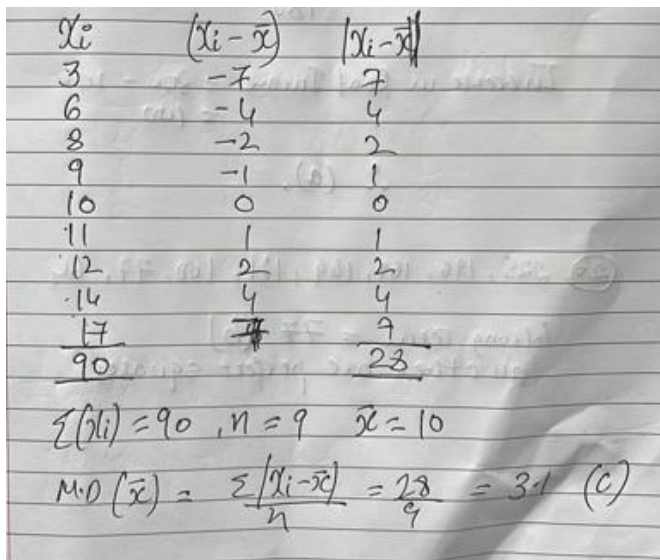 xi (xi - x̄) |xi - x̄|
3 -7 7
6 -4 4
8 -2 2
9 -1 1
10 0 0
11 1 1
12 2 2
14 4 4
17 7
90 28
Σ(xi) = 90 , n = 9 x̄ = 10
M.D (x̄) = Σ|xi - x̄| / n = 28 / 9 = 3.1 (C)